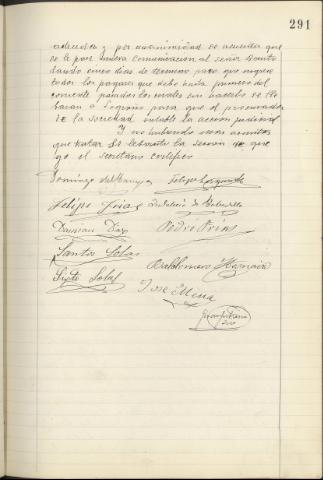 291
y por unanimidad se acuerda que
se le pase nueva comunicacion al señor
dando cinco dias de termino para que
todos los pagares que debe hasta primero del
corriente pasados los cuales sin hacerlo se lle
baran a Logroño para que el procurador
de la sociedad entable la accion judicial
Y no habiendo mas asuntos
que tratar se lebanta la sesion de que
yo el secretario certifico
Domingo del Campo Felipe
Felipe Frias Indalecio de
Damian Diaz Pedro Frias
Santos Salas
Sixto Salas Baldomero
Jose Mena